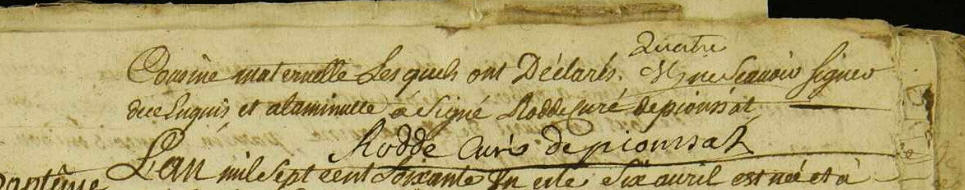 Quatre
Cousine maternelle Lesquels ont Déclarés. ne Scavoir Signer
dece Enquis et alaminutte a Signé Rodde Curé depionsat
Rodde Curé de pionsat
Baptême L'an mil sept cent soixante Un et le Six avril est né et à